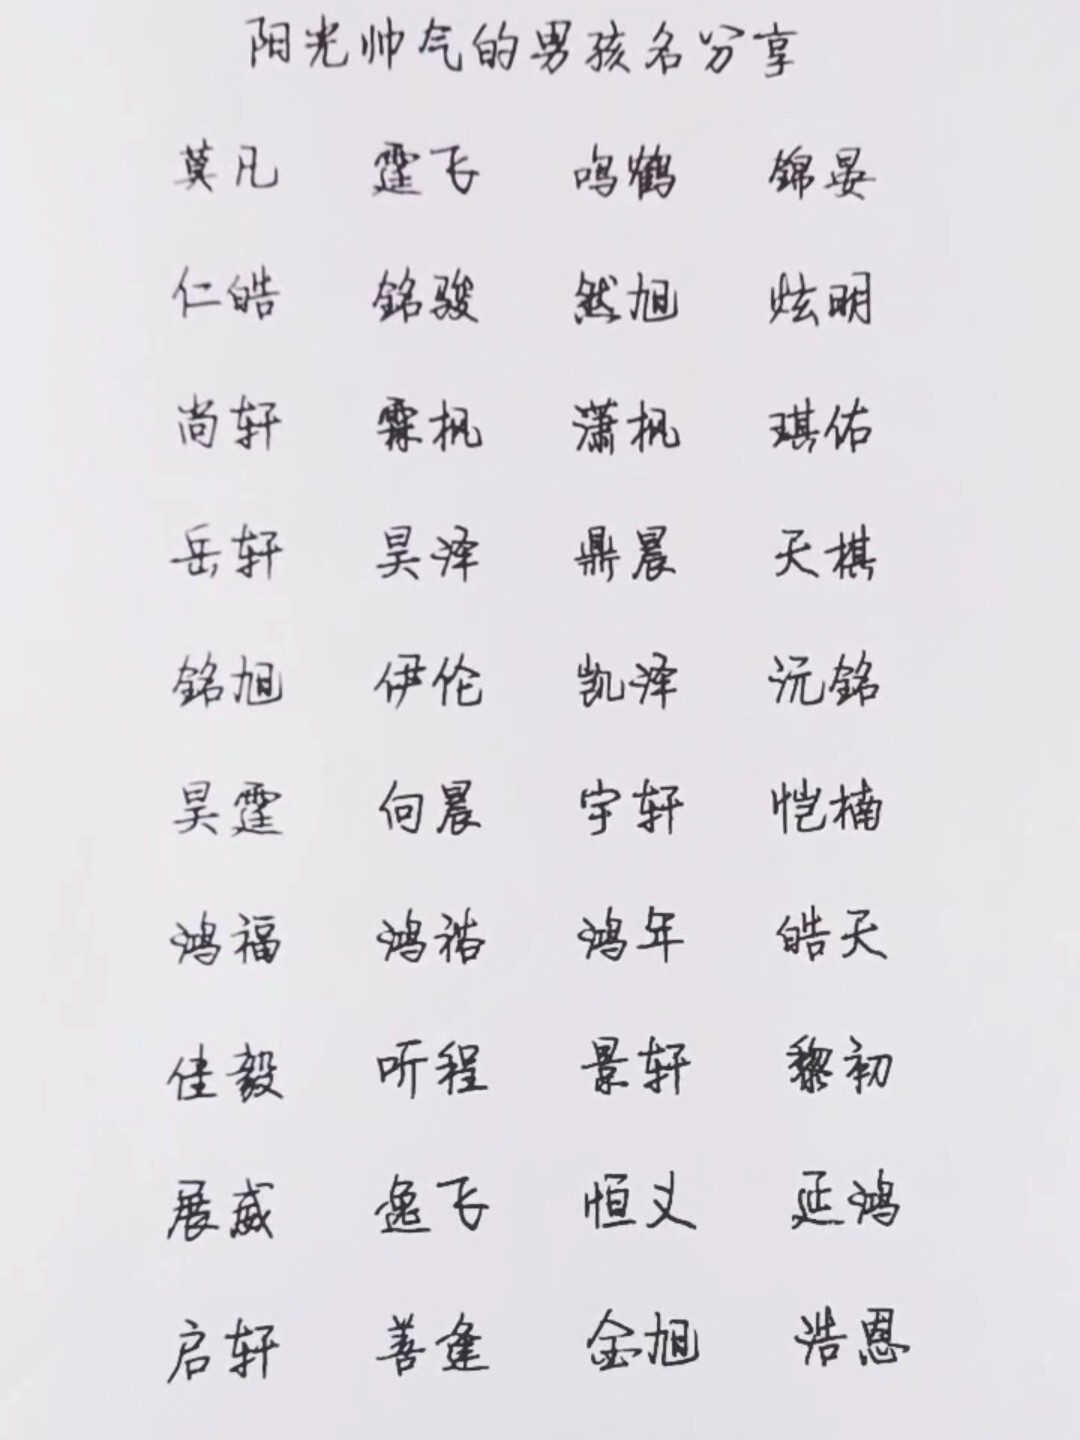 阳光帅气的男孩名分享
莫凡 霆飞 鸣鹤 锦晏
仁皓 铭骏 然旭 炫明
尚轩 霖枫 潇枫 琪佑
岳轩 昊泽 鼎晨 天棋
铭旭 伊伦 凯泽 沅铭
昊霆 向晨 宇轩 恺楠
鸿福 鸿祜 鸿年 皓天
佳毅 听程 景轩 黎初
展威 逸飞 恒义 延鸿
启轩 善逢 金旭 浩恩